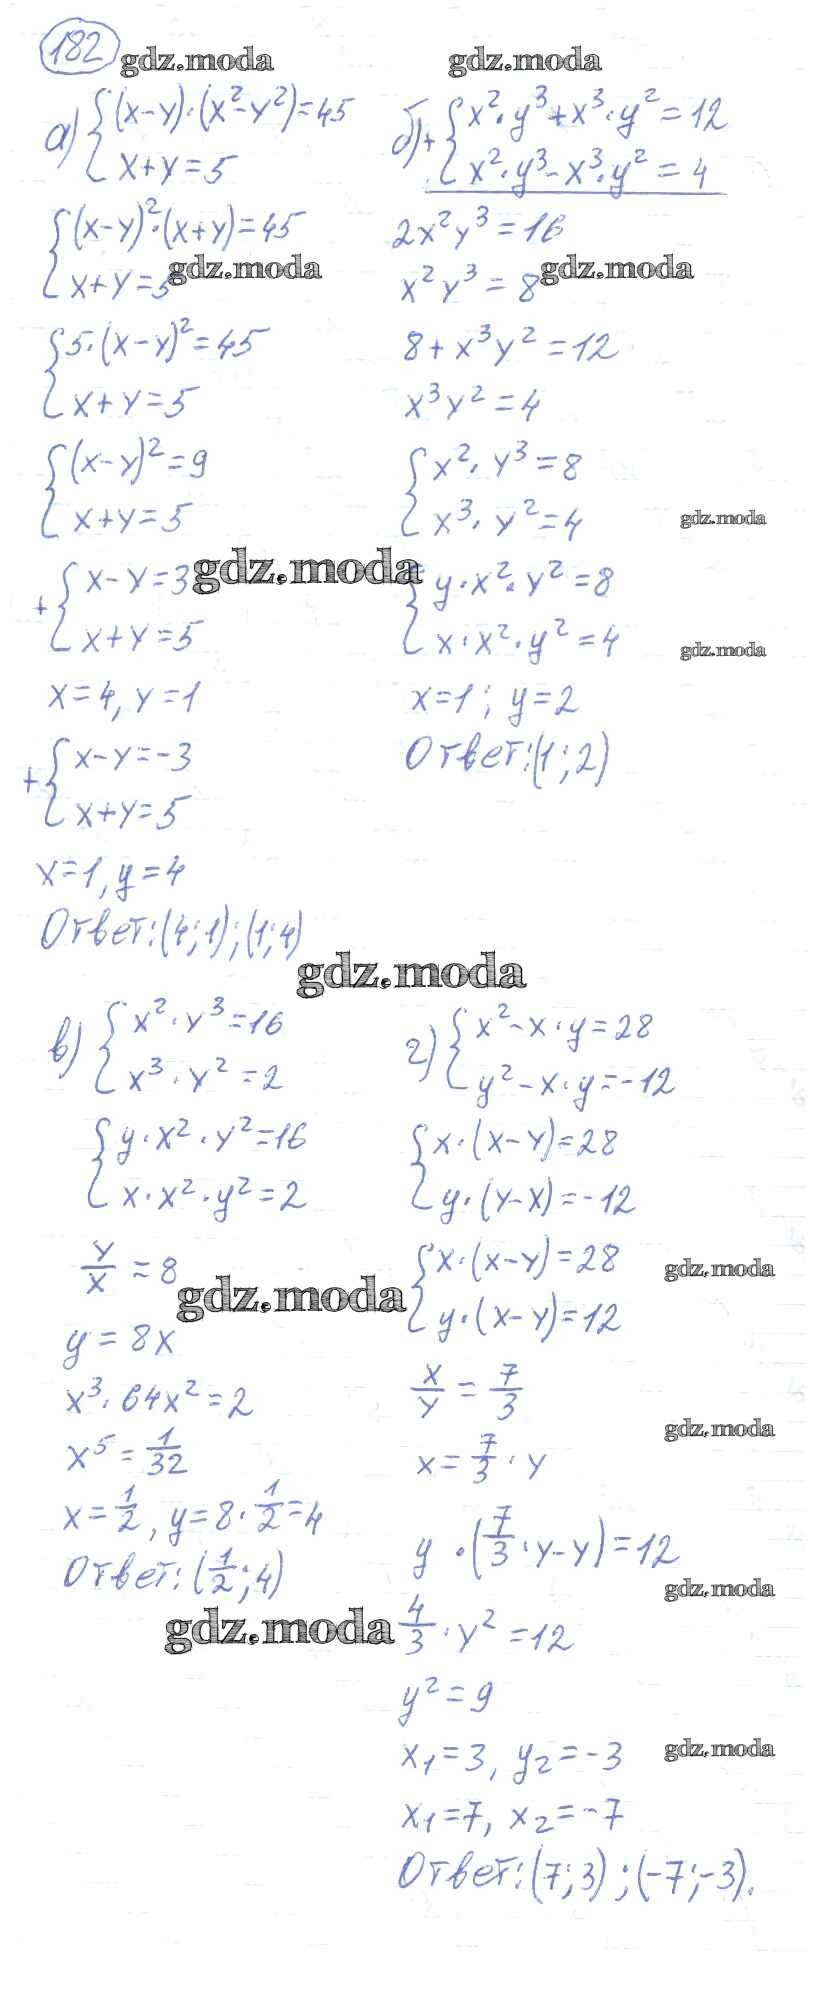 182
gdz.moda
gdz.moda
а) {(x-y)·(x²-y²)=45
x+y=5
{(x-y)²·(x+y)=45
x+y=5
gdz.moda
{5·(x-y)²=45
x+y=5
{(x-y)²=9
x+y=5
+{x-y=3
x+y=5
gdz.moda
x=4, y=1
+{x-y=-3
x+y=5
x=1, y=4
Ответ: (4;1); (1;4)
б) +{x²·y³+x³·y²=12
x²·y³-x³·y²=4
2x²y³=16
gdz.moda
x²y³=8
8+x³y²=12
x³y²=4
{x²·y³=8
x³·y²=4
gdz.moda
{y·x²·y²=8
x·x²·y²=4
gdz.moda
x=1; y=2
Ответ: (1;2)
gdz.moda
в) {x²·y³=16
x³·y²=2
{y·x²·y²=16
x·x²·y²=2
y/x=8
gdz.moda
y=8x
x³·64x²=2
x⁵=1/32
x=1/2, y=8·1/2=4
Ответ: (1/2;4)
gdz.moda
г) {x²-x·y=28
y²-x·y=-12
{x·(x-y)=28
y·(y-x)=-12
{x·(x-y)=28
y·(x-y)=12
gdz.moda
x/y=7/3
gdz.moda
x=7/3·y
y·(7/3·y-y)=12
gdz.moda
4/3·y²=12
y²=9
x₁=3, y₂=-3
gdz.moda
x₁=7, x₂=-7
Ответ: (7;3); (-7;-3).